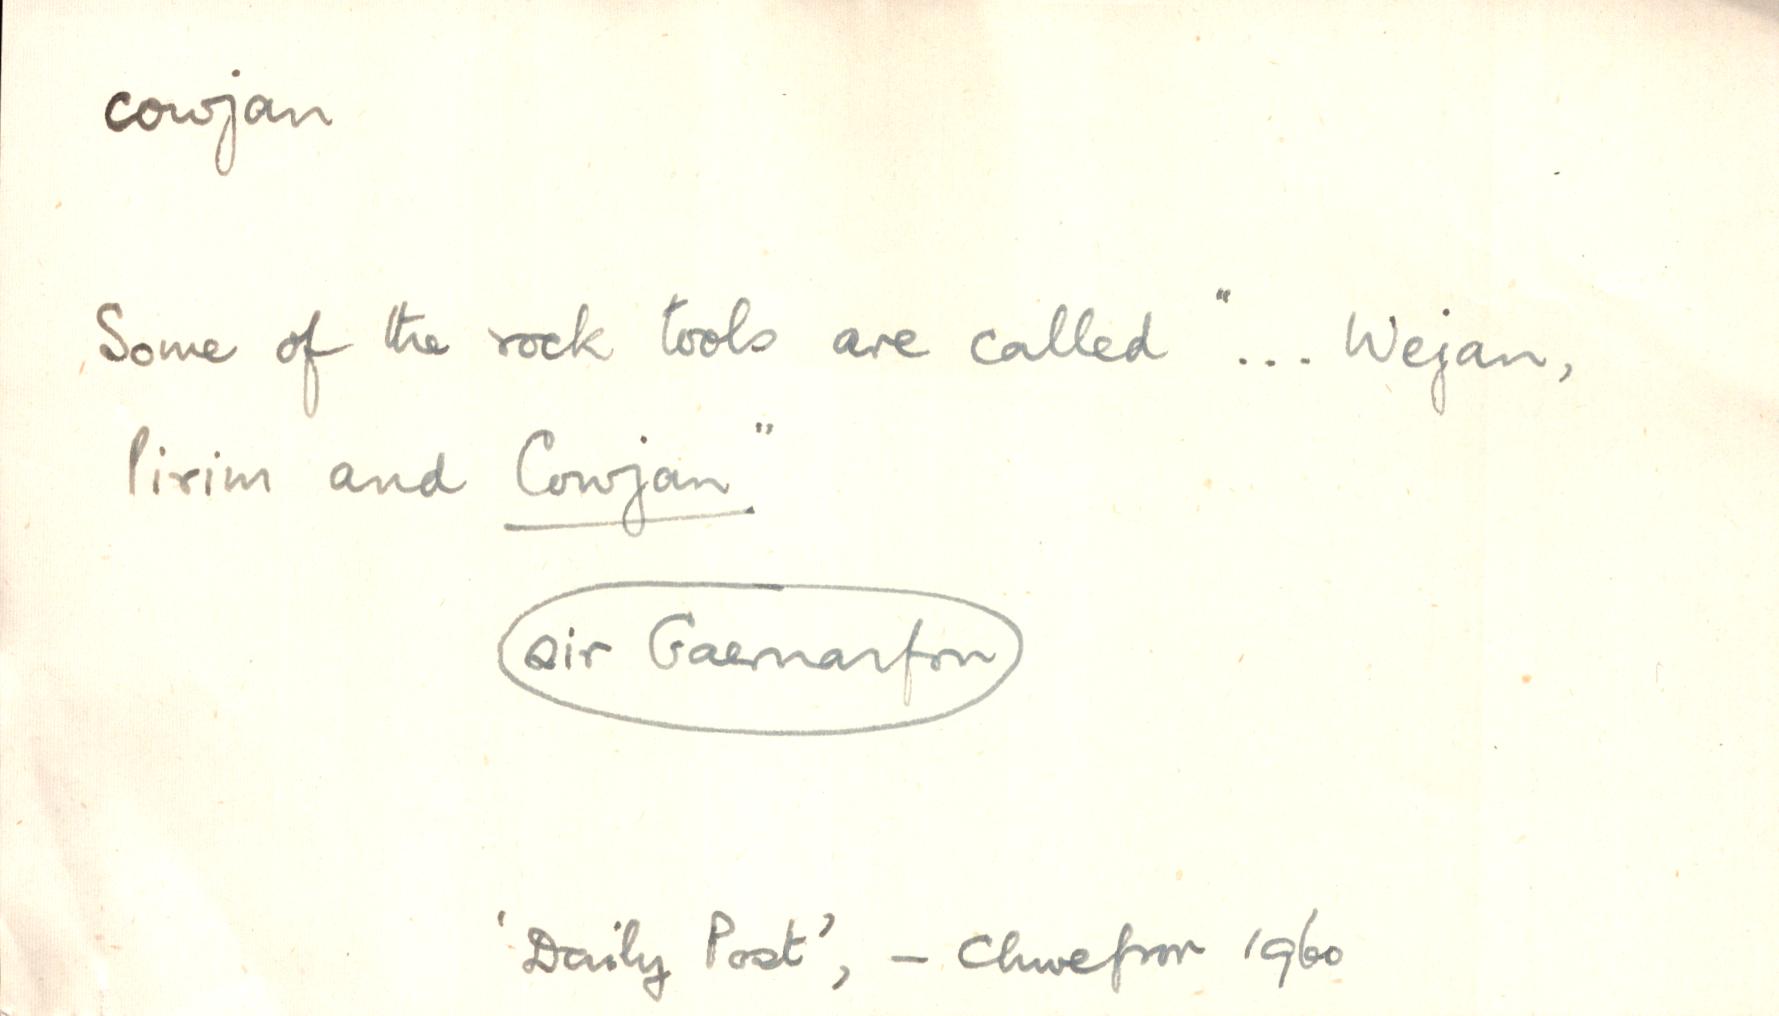 cowjan
Some of the rock tools are called "... Wejan,
Pirim and Cowjan"
sir Gaernarfon
'Daily Post', – Chwefror 1960